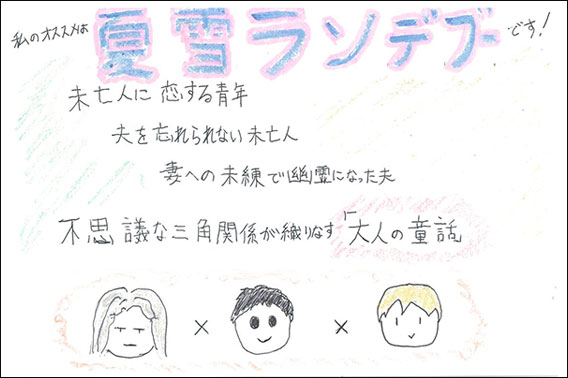 私のオススメは 夏雪ランデブー です!
未亡人に恋する青年
夫を忘れられない未亡人
妻への未練で幽霊になった夫
不思議な三角関係が織りなす「大人の童話」
× ×